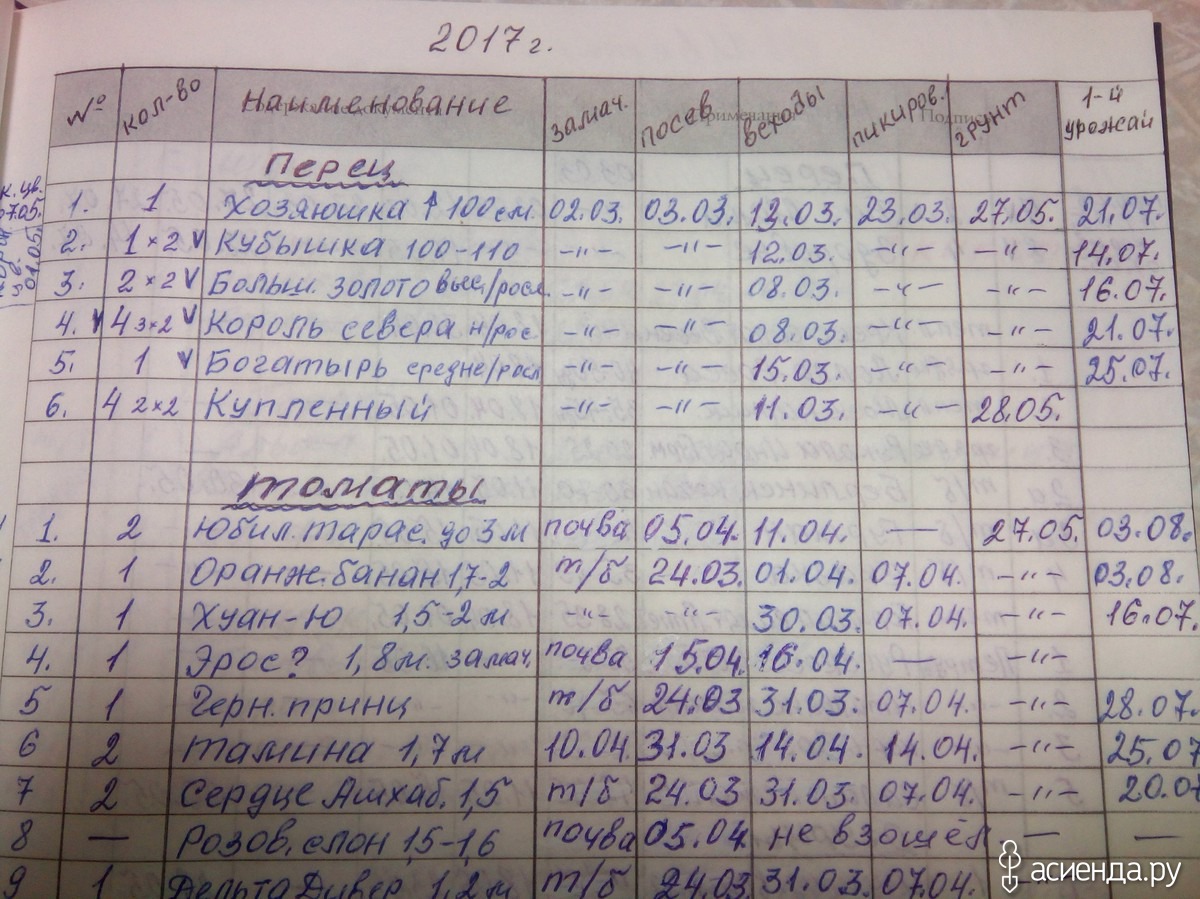 2017 г.
№ кол-во Наименование замач. посев всходы пикиров. грунт 1-й урожай
Перец
1. 1 Хозяюшка ↑ 100 см. 02.03. 03.03. 13.03. 23.03. 27.05. 21.07.
2. 1×2 ✓ Кубышка 100-110 -"- -"- 12.03. -"- -"- 14.07.
3. 2×2 ✓ Больш. золото выс/росл. -"- -"- 08.03. -"- -"- 16.07.
4. ✓ 4 3×2 ✓ Король севера н/рос -"- -"- 08.03. -"- -"- 21.07.
5. 1 ✓ Богатырь средне/росл -"- -"- 15.03. -"- -"- 25.07.
6. 4 2×2 Купленный -"- -"- 11.03. -"- 28.05.
Томаты
1. 2 Юбил. Тарас. до 3 м почва 05.04. 11.04. — 27.05. 03.08.
2. 1 Оранж. банан 1,7-2 т/б 24.03. 01.04. 07.04. -"- 03.08.
3. 1 Хуан-Ю 1,5-2 м -"- -"- 30.03. 07.04. -"- 16.07.
4. 1 Эрос? 1,8 м. замач. почва 15.04. 16.04. — -"-
5 1 Черн. принц т/б 24.03 31.03. 07.04. -"- 28.07.
6 2 Тамина 1,7 м 10.04. 31.03 14.04. 14.04. -"- 25.07
7 2 Сердце Ашхаб. 1,5 т/б 24.03 31.03. 07.04. -"- 20.07
8 — Розов. слон 1,5-1,6 почва 05.04. не взошёл — —
9 1 Дельта Дивер 1,2 м т/б 24.03 31.03. 07.04. -"-
асиенда.ру